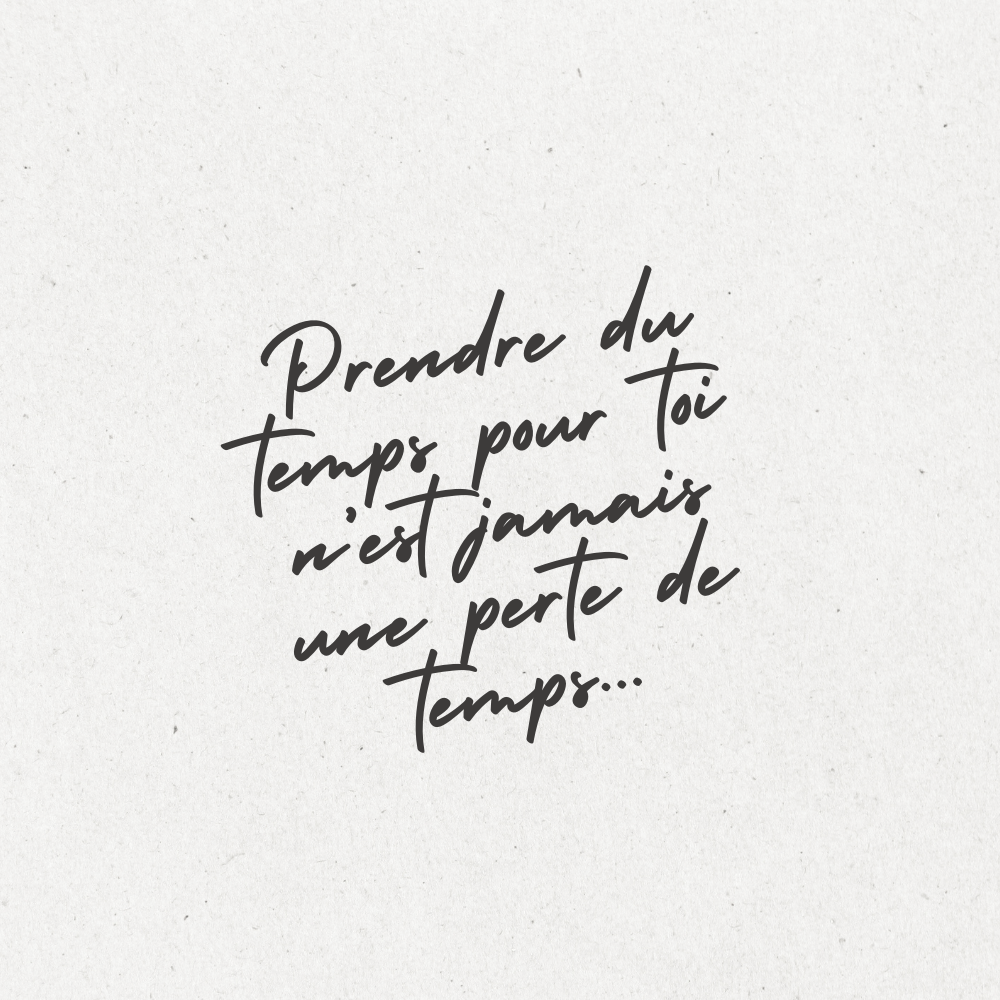 Prendre du
temps pour toi
n'est jamais
une perte de
temps...